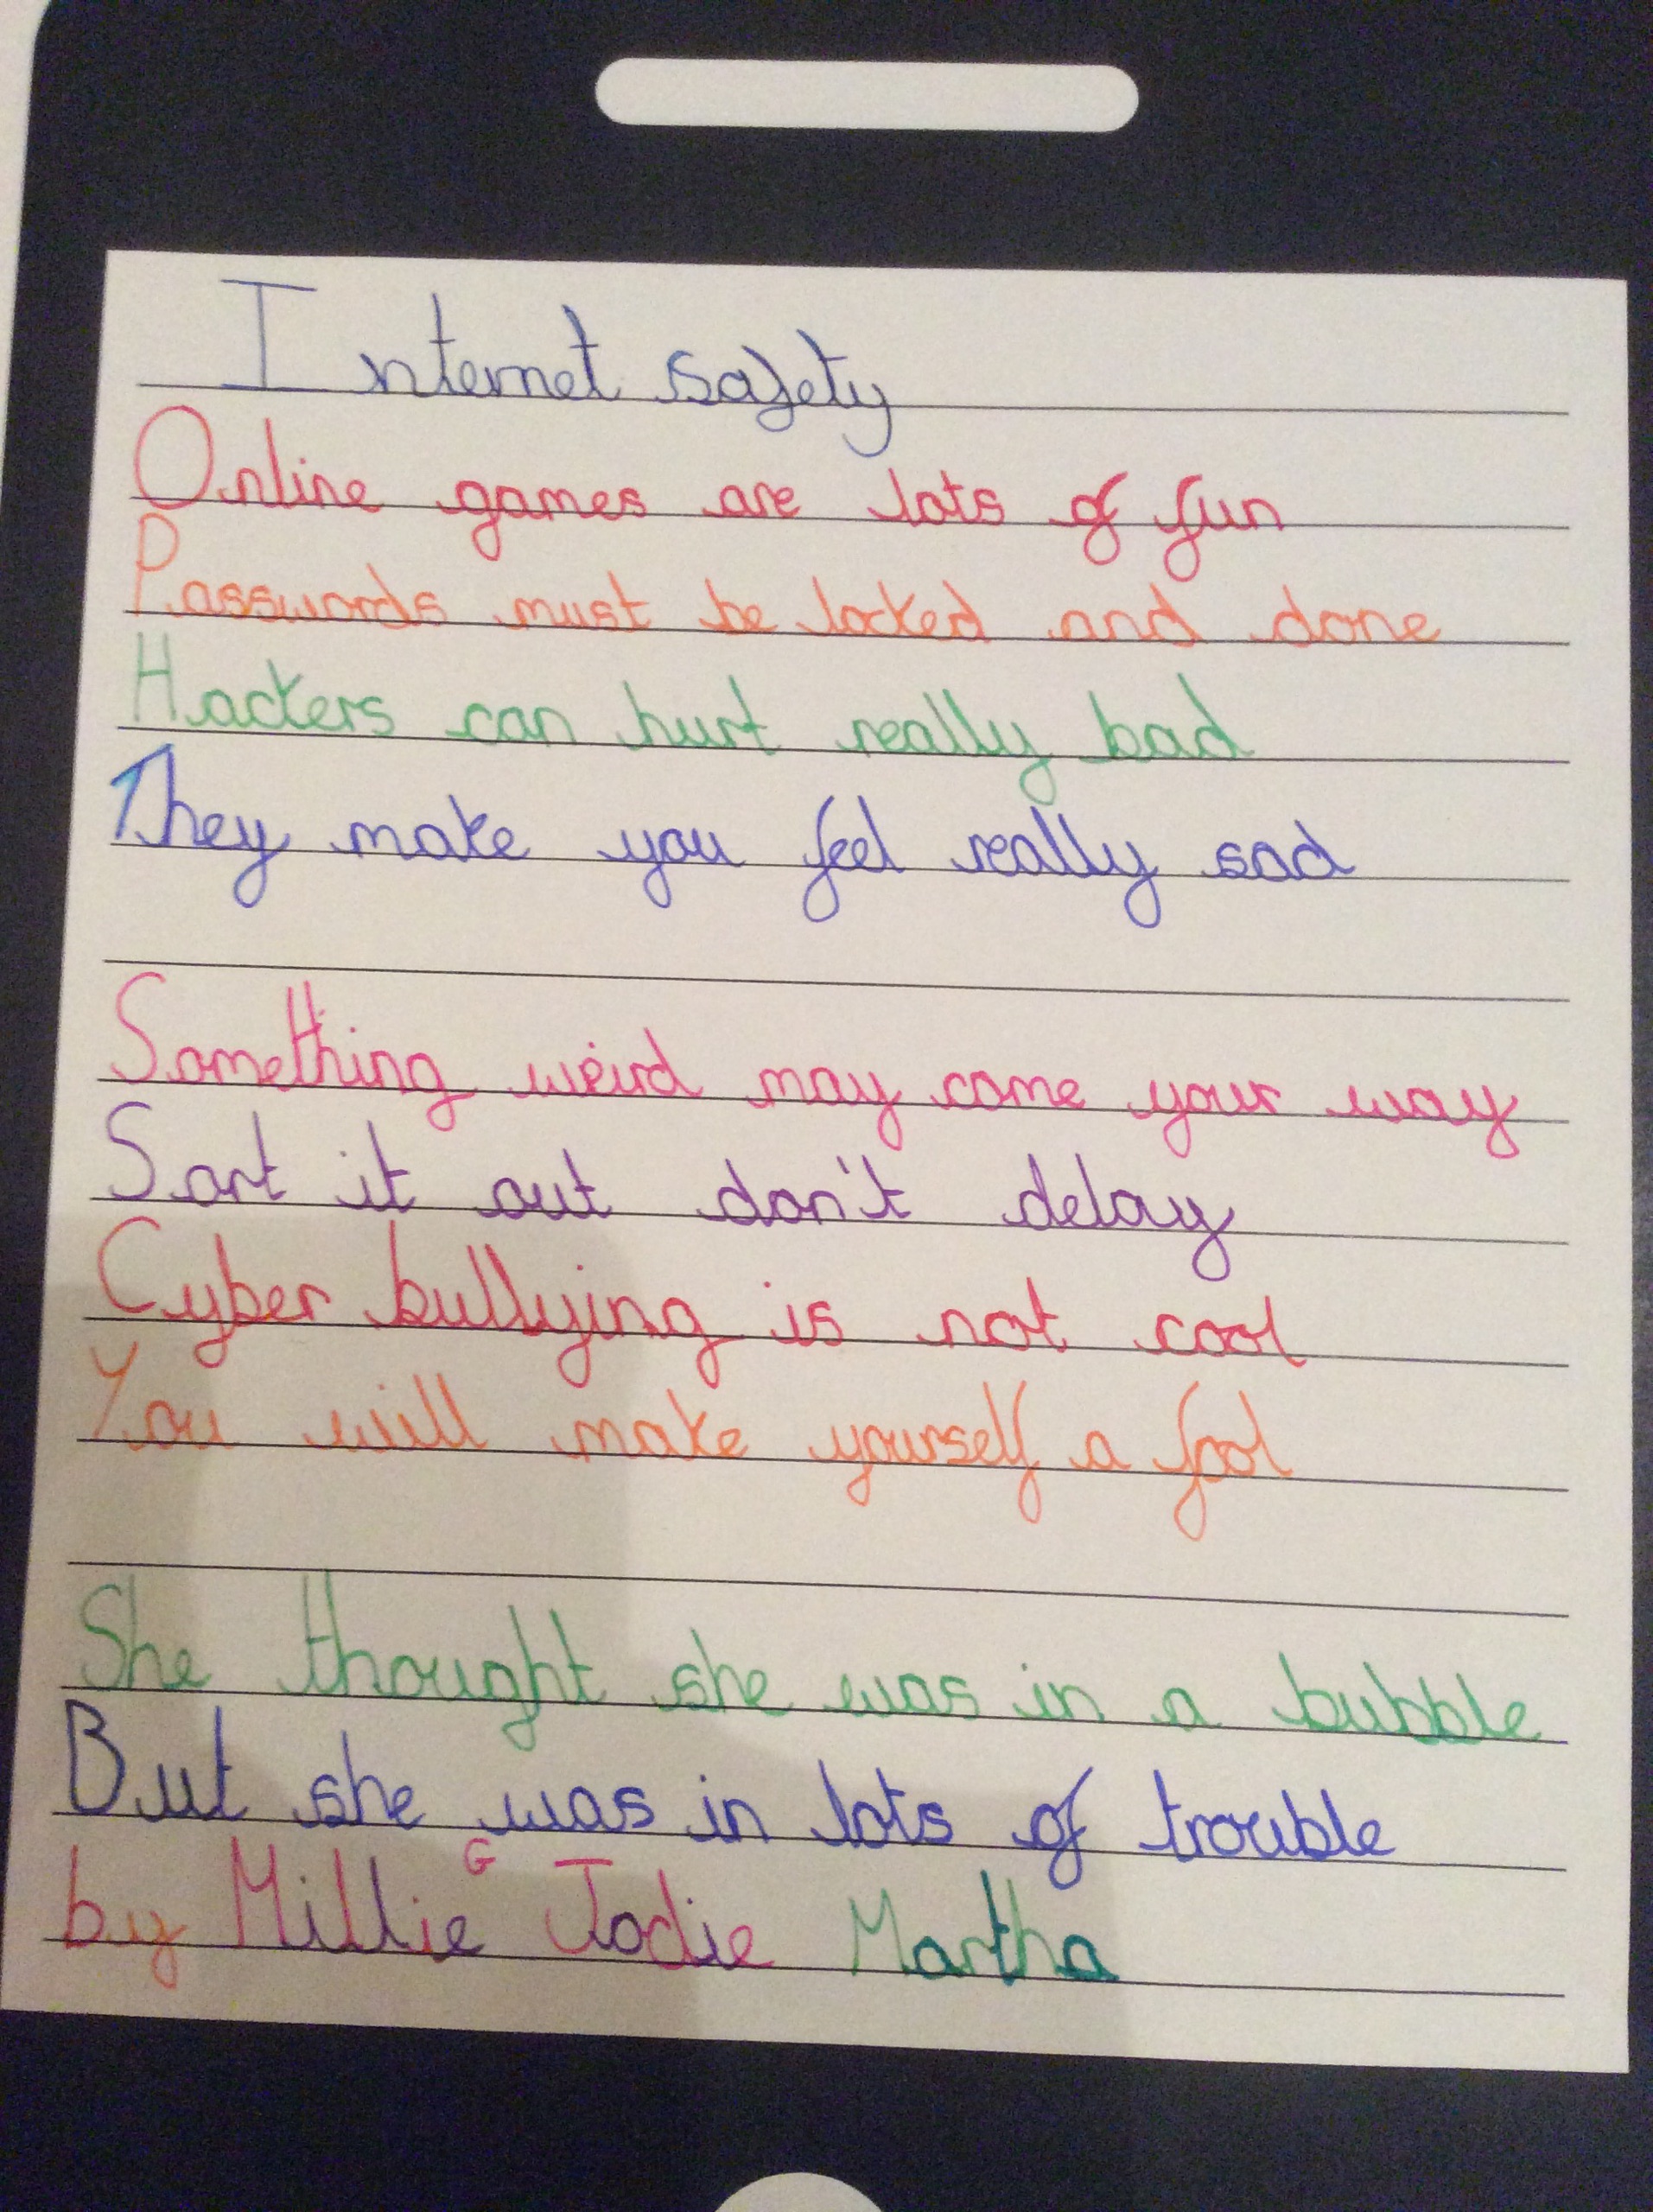 Internet safety
Online games are lots of fun
Passwords must be locked and done
Hackers can hurt really bad
They make you feel really sad
Something weird may come your way
Sort it out don't delay
Cyber bullying is not cool
You will make yourself a fool
She thought she was in a bubble
But she was in lots of trouble
by Millie G Jodie Martha